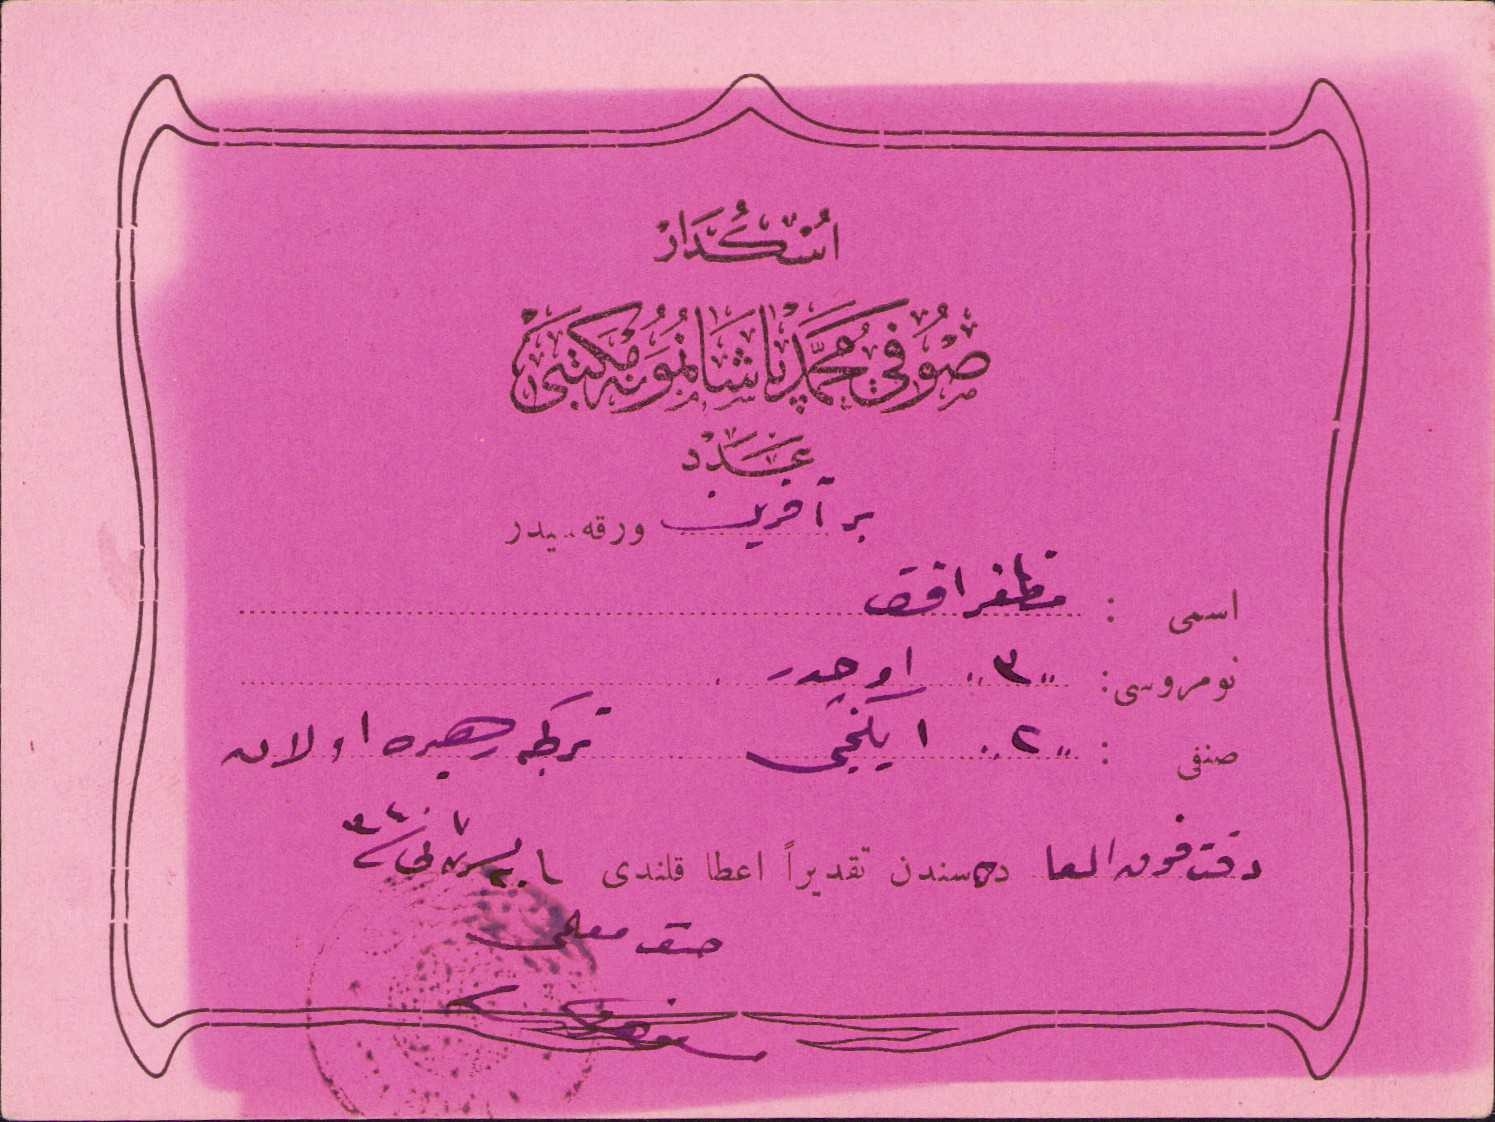 اُسْكُدَارْ
صُوْفِي مُحَمَّدْ پَاشَا نُمُونَه مَكْتَبِي
عَدَدْ
بر آفرین ورقه‌سیدر
اسمی : مظفر افق
نومروسی : „٣„ اوچدر
صنفی : „٢„ ایكنجی تركجه اولان
دقت فوق العا ده‌سندن تقدیراً اعطا قلندی
صنف معلمی